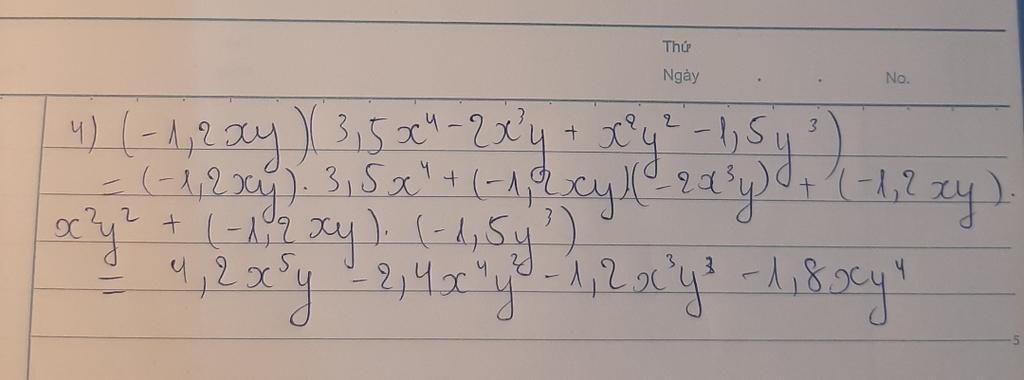 Thứ
Ngày . . No.
4) (-1,2xy)(3,5x⁴ - 2x³y + x²y² - 1,5y³)
= (-1,2xy). 3,5x⁴ + (-1,2xy)(-2x³y) + (-1,2xy).
x²y² + (-1,2xy). (-1,5y³)
= 4,2x⁵y - 2,4x⁴y² - 1,2x³y³ - 1,8xy⁴
5